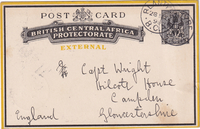 POST CARD
BRITISH CENTRAL AFRICA
PROTECTORATE
EXTERNAL
Capt Wright
House
Campden
Gloucestershire
England